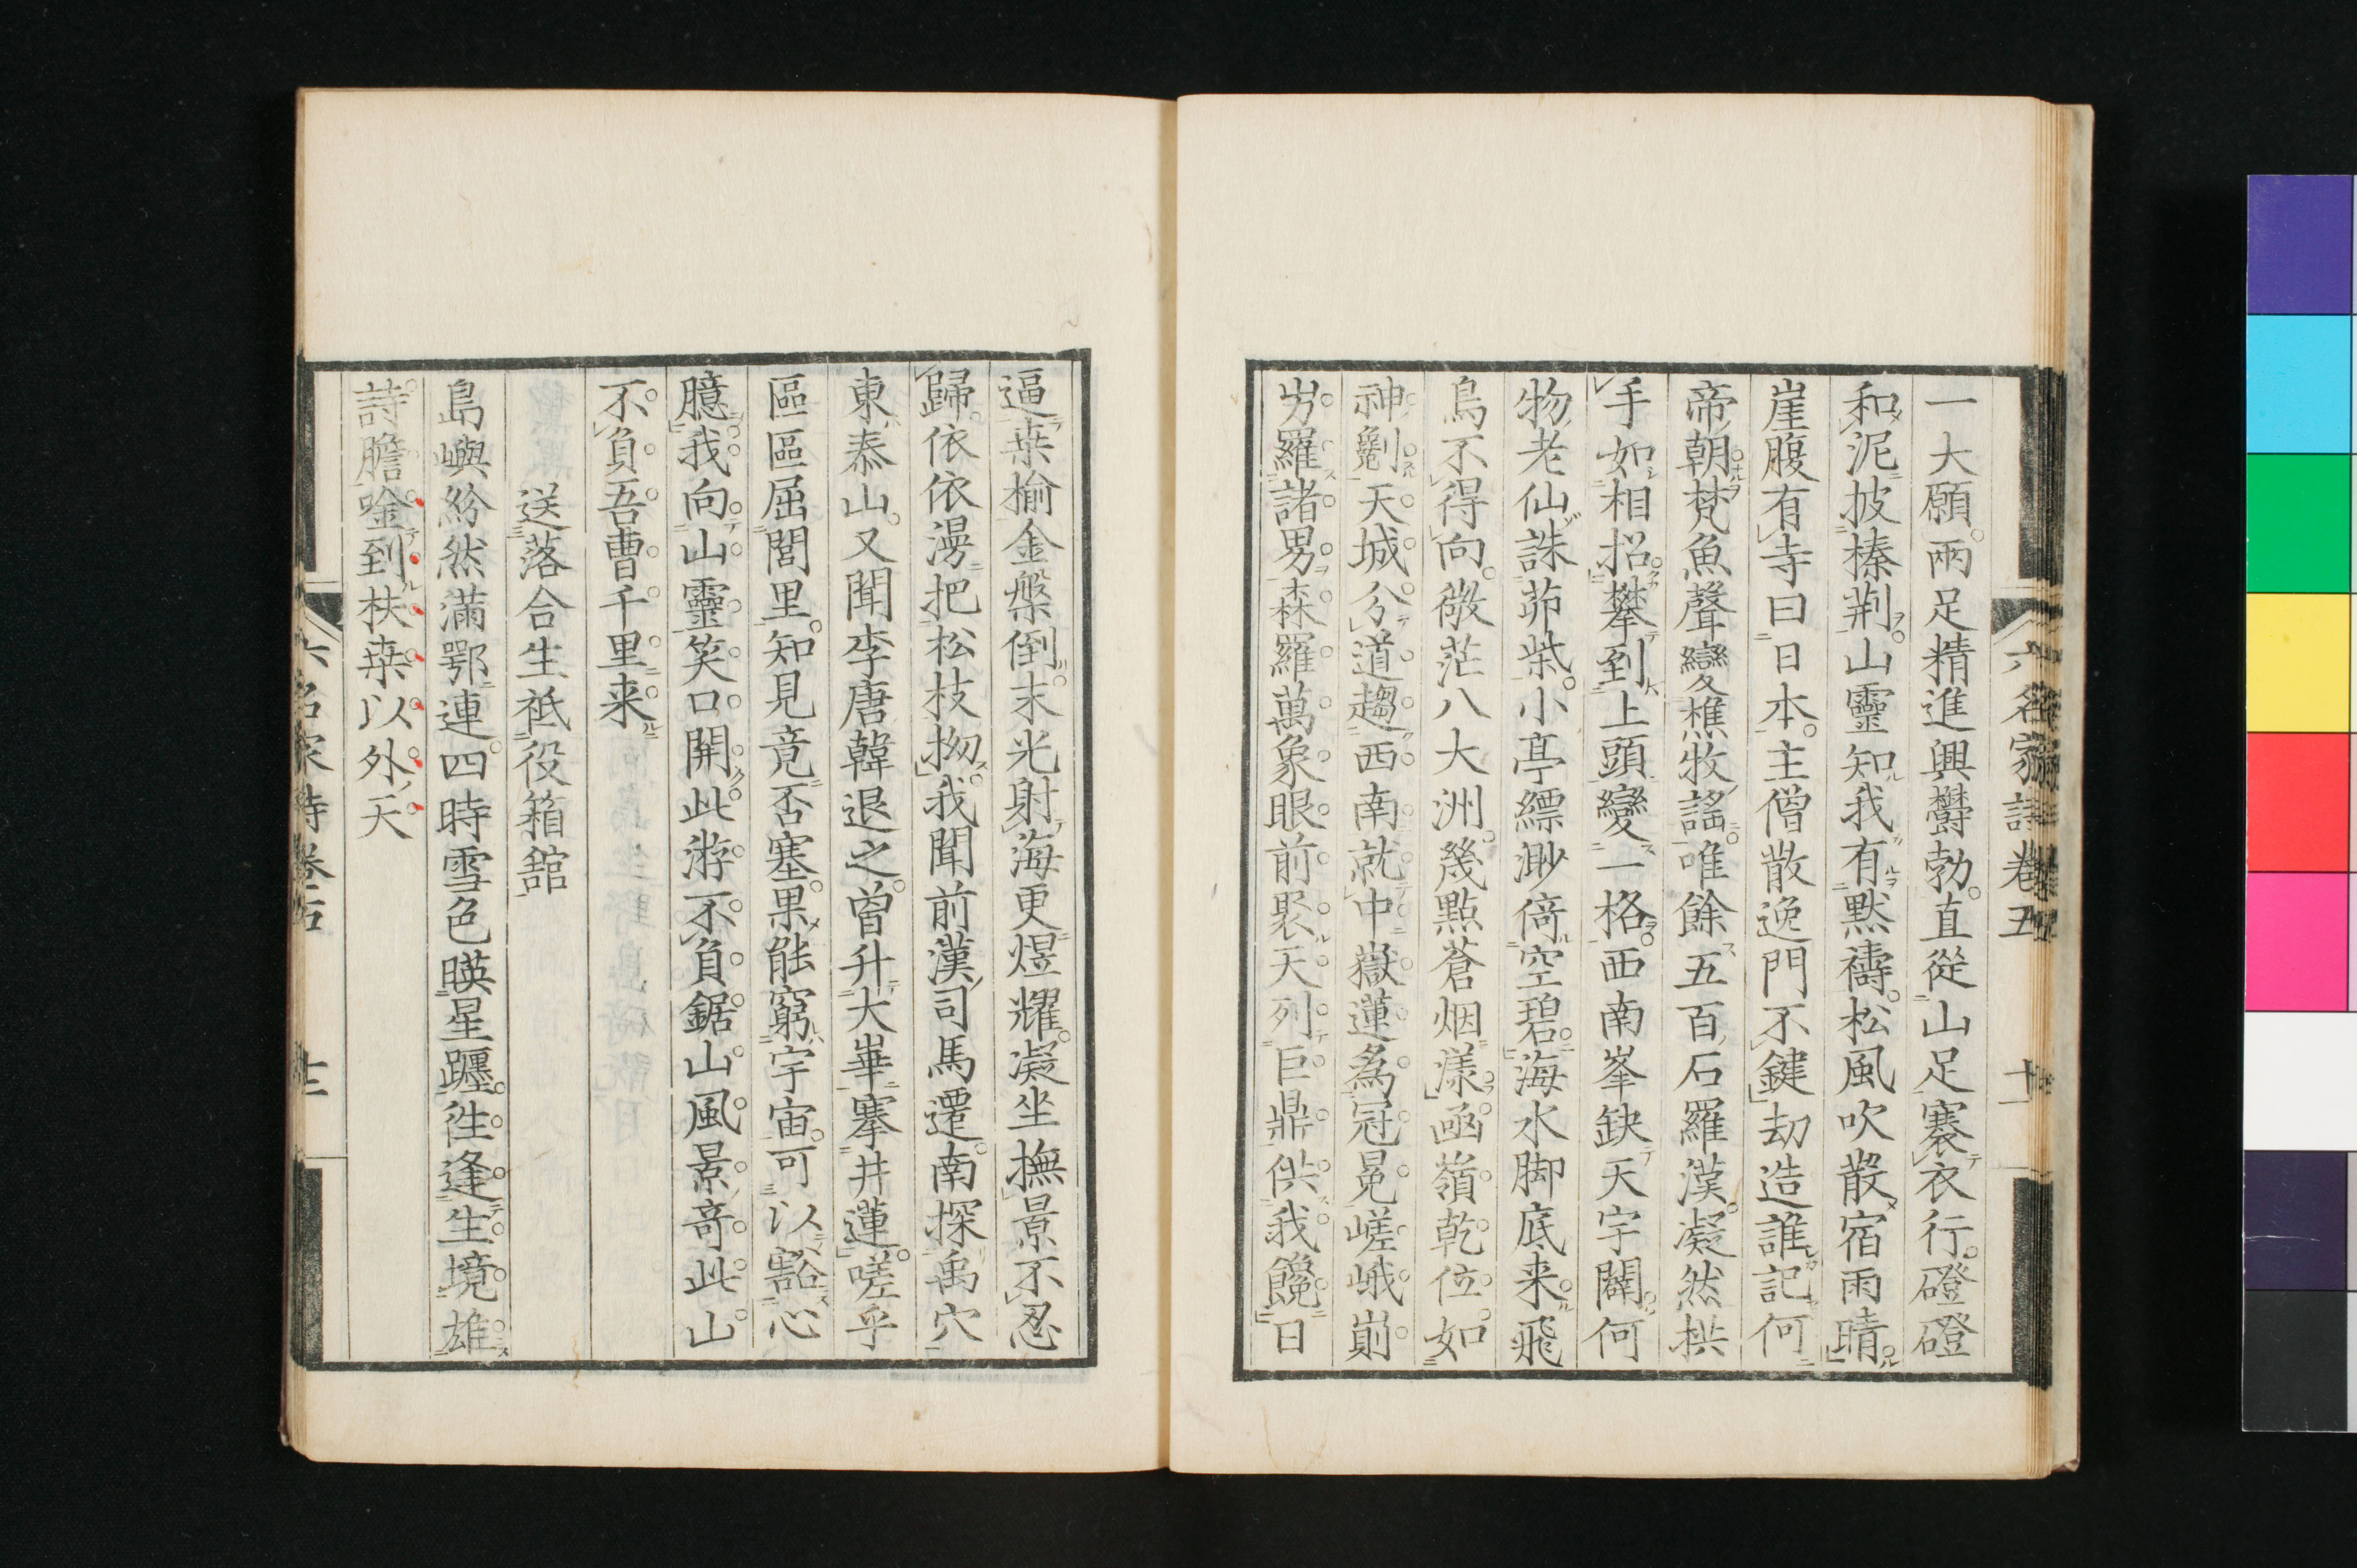 六名家詩 卷五 十一
一大願兩足精進興欝勃直從山足褰衣行磴磴
和泥披榛荆山靈知我有黙禱松風吹散宿雨晴
崖腹有寺曰日本主僧散逸門不鍵刼造誰記何
帝朝梵魚聲變樵牧謠唯餘五百石羅漢凝然拱
手如相招攀到上頭變一格西南峯缺天宇闢何
物老仙誅茆柴小亭縹渺倚空碧海水脚底来飛
鳥不得向微茫八大洲幾點蒼烟漾凾嶺乾位如
神劖天城分道趨西南就中嶽蓮為冠冕嵯峨崱
屴羅諸男森羅萬象眼前聚天列巨鼎供我饞日
逼桒榆金盤倒末光射海更煜耀凝坐撫景不忍
歸依依漫把松枝拗我聞前漢司馬遷南探禹穴
東泰山又聞李唐韓退之曽升大崋搴井蓮嗟乎
區區屈閭里知見竟否塞果能窮宇宙可以豁心
臆我向山靈笑口開此游不負鋸山風景竒此山
不負吾曹千里来
送落合生祗役箱舘
島嶼紛然滿鄂連四時雪色暎星躔徃逢生境雄
詩膽唫到扶桒以外天
六名家詩 卷五 十二